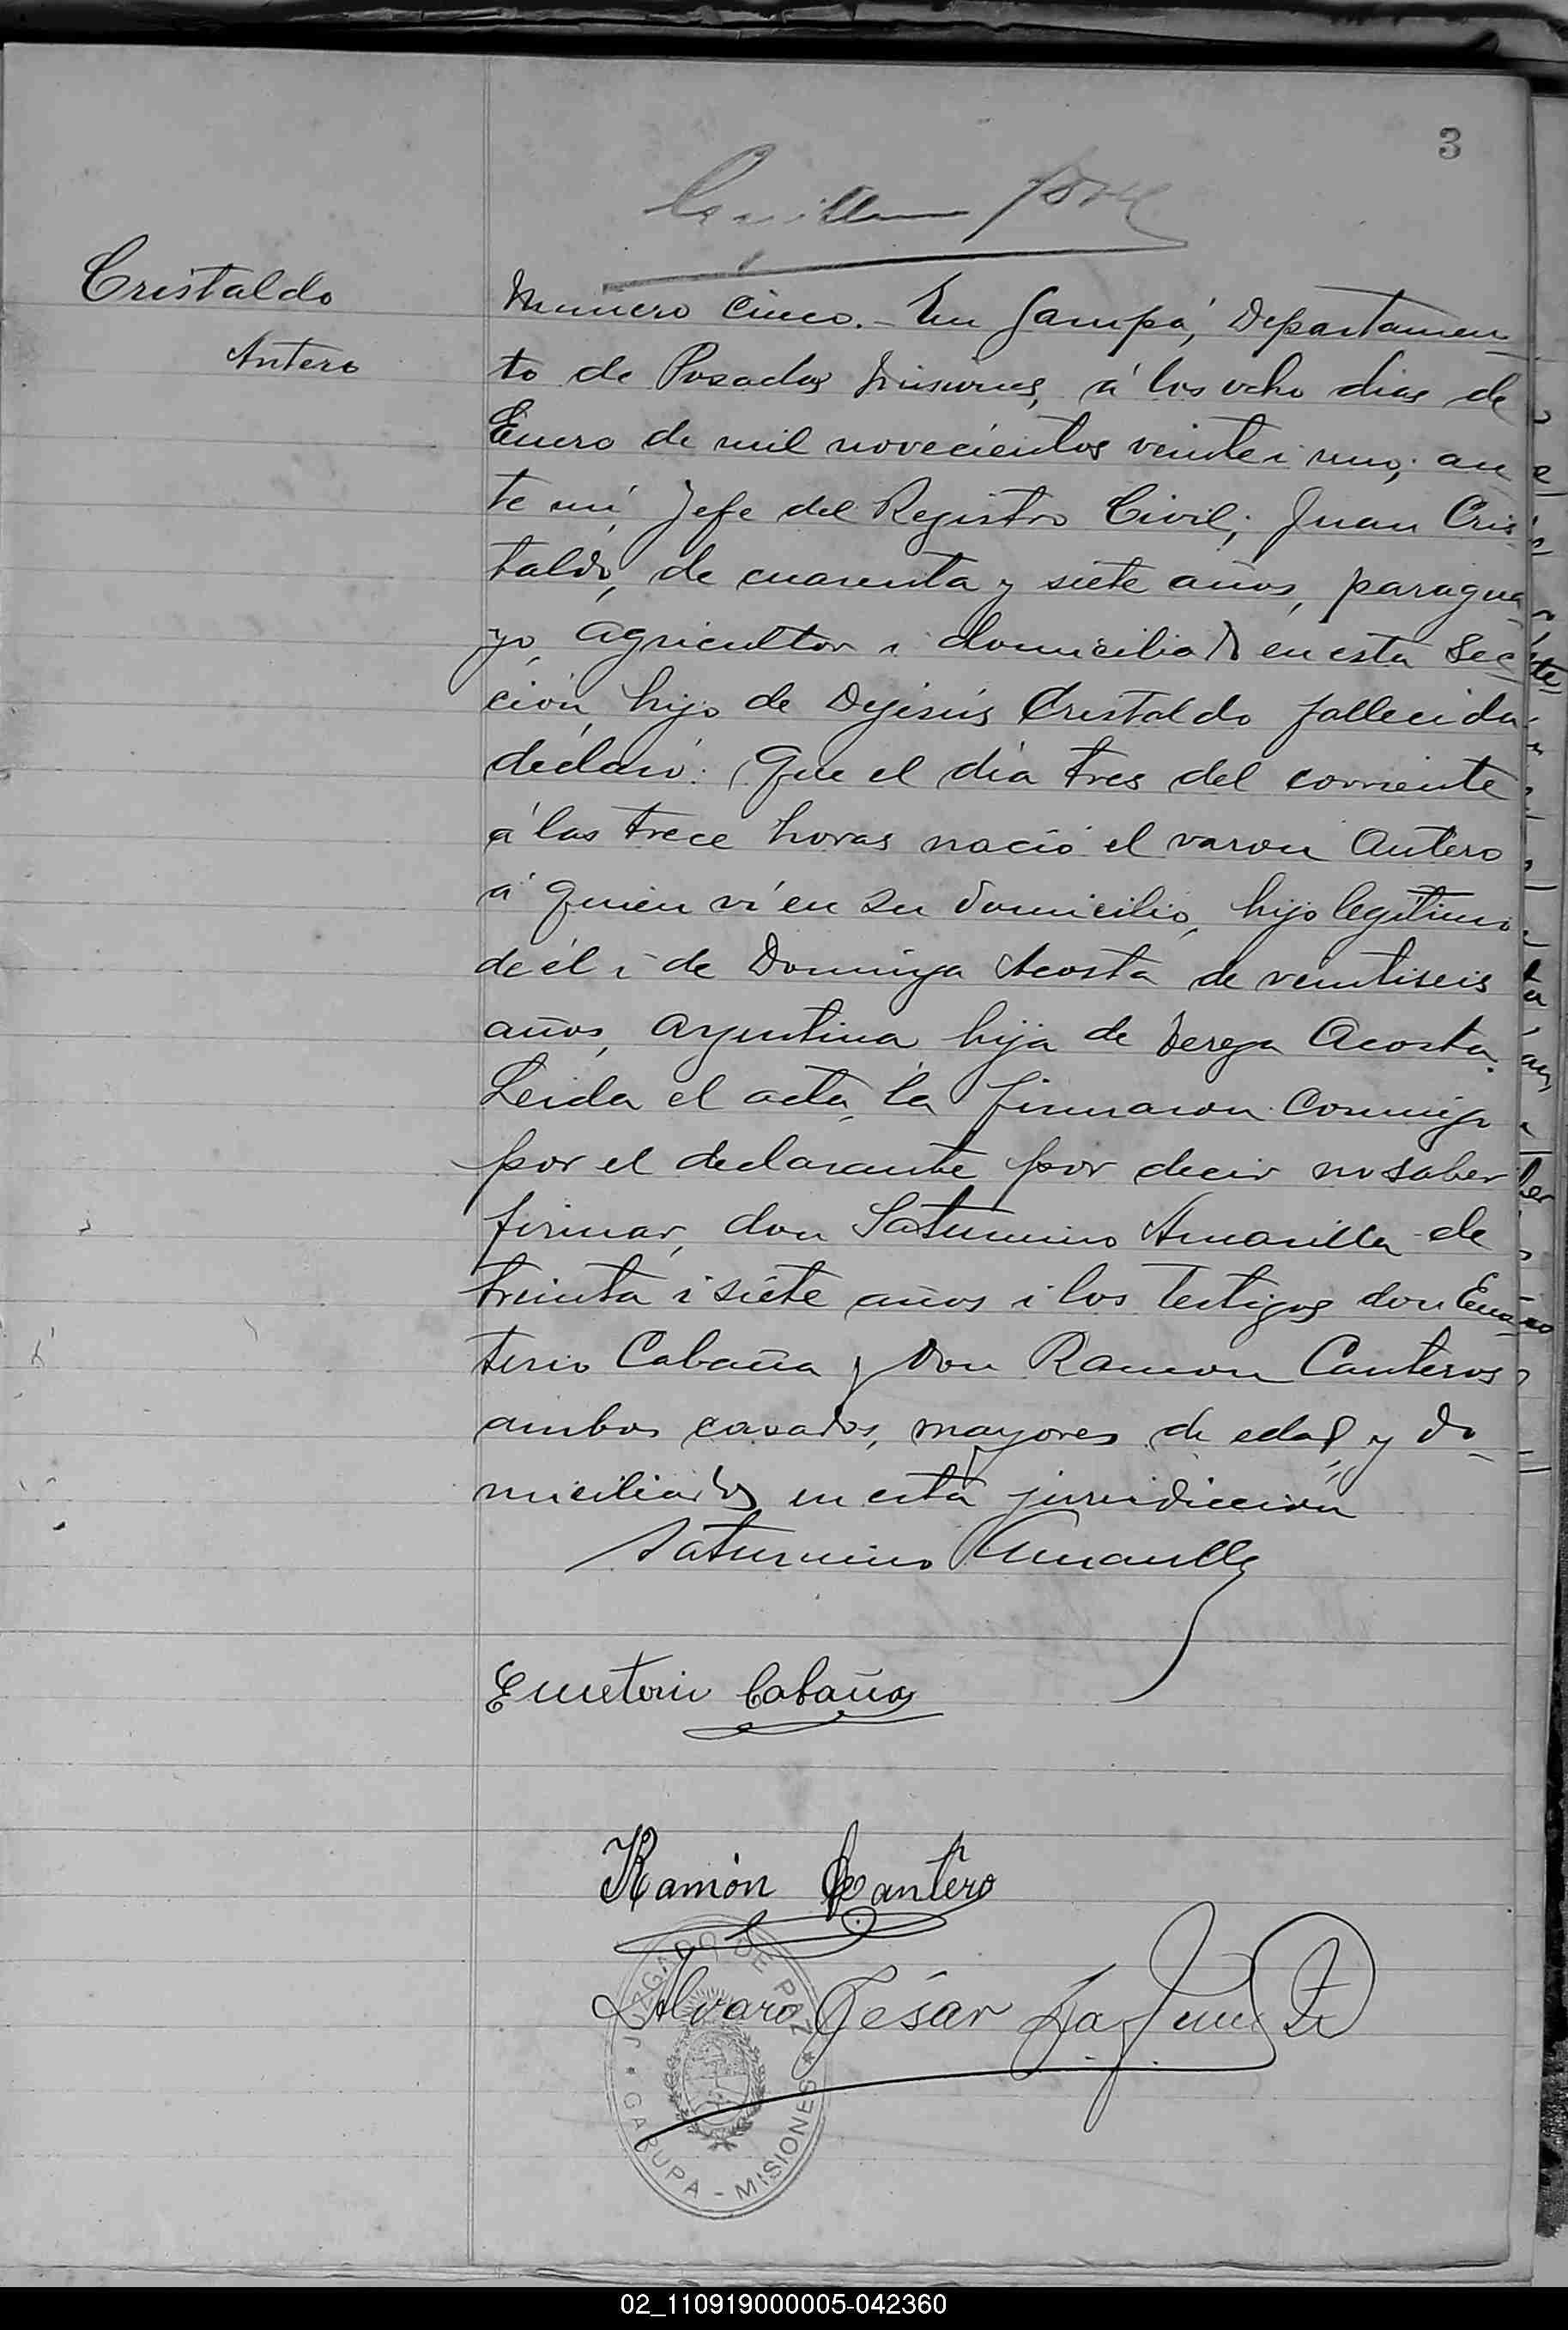 3
Cristaldo
Antero
Numero Cinco.- En Garupá, Departamen-
to de Posadas Misiones, á los ocho dias de
Enero de mil novecientos veinte i uno; an
te mí, Jefe del Registro Civil; Juan Cris-
taldo, de cuarenta y siete años, paragua-
yo, agricultor i domiciliado en esta Sec-
ción, hijo de Dejesús Cristaldo fallecida
declaró: Que el día tres del corriente
á las trece horas nació el varon Antero
á quien ví en su domicilio, hijo legítimo
de él i de Dominga Acosta de veintiseis
años, argentina hija de Acosta.
Leida el acta, la firmaron conmigo
por el declarante por decir no saber
firmar, don Saturnino Amarilla de
treinta i siete años i los testigos don Eme-
terio Cabaña y Don Ramon Canteros
ambos casados, mayores de edad, y do-
miciliados en esta jurisdiccion
Saturnino Amarilla
Emeterio Cabañas
Ramón Cantero
Alvaro César
JUZGADO DE PAZ * GARUPA - MISIONES *
02_110919000005-042360